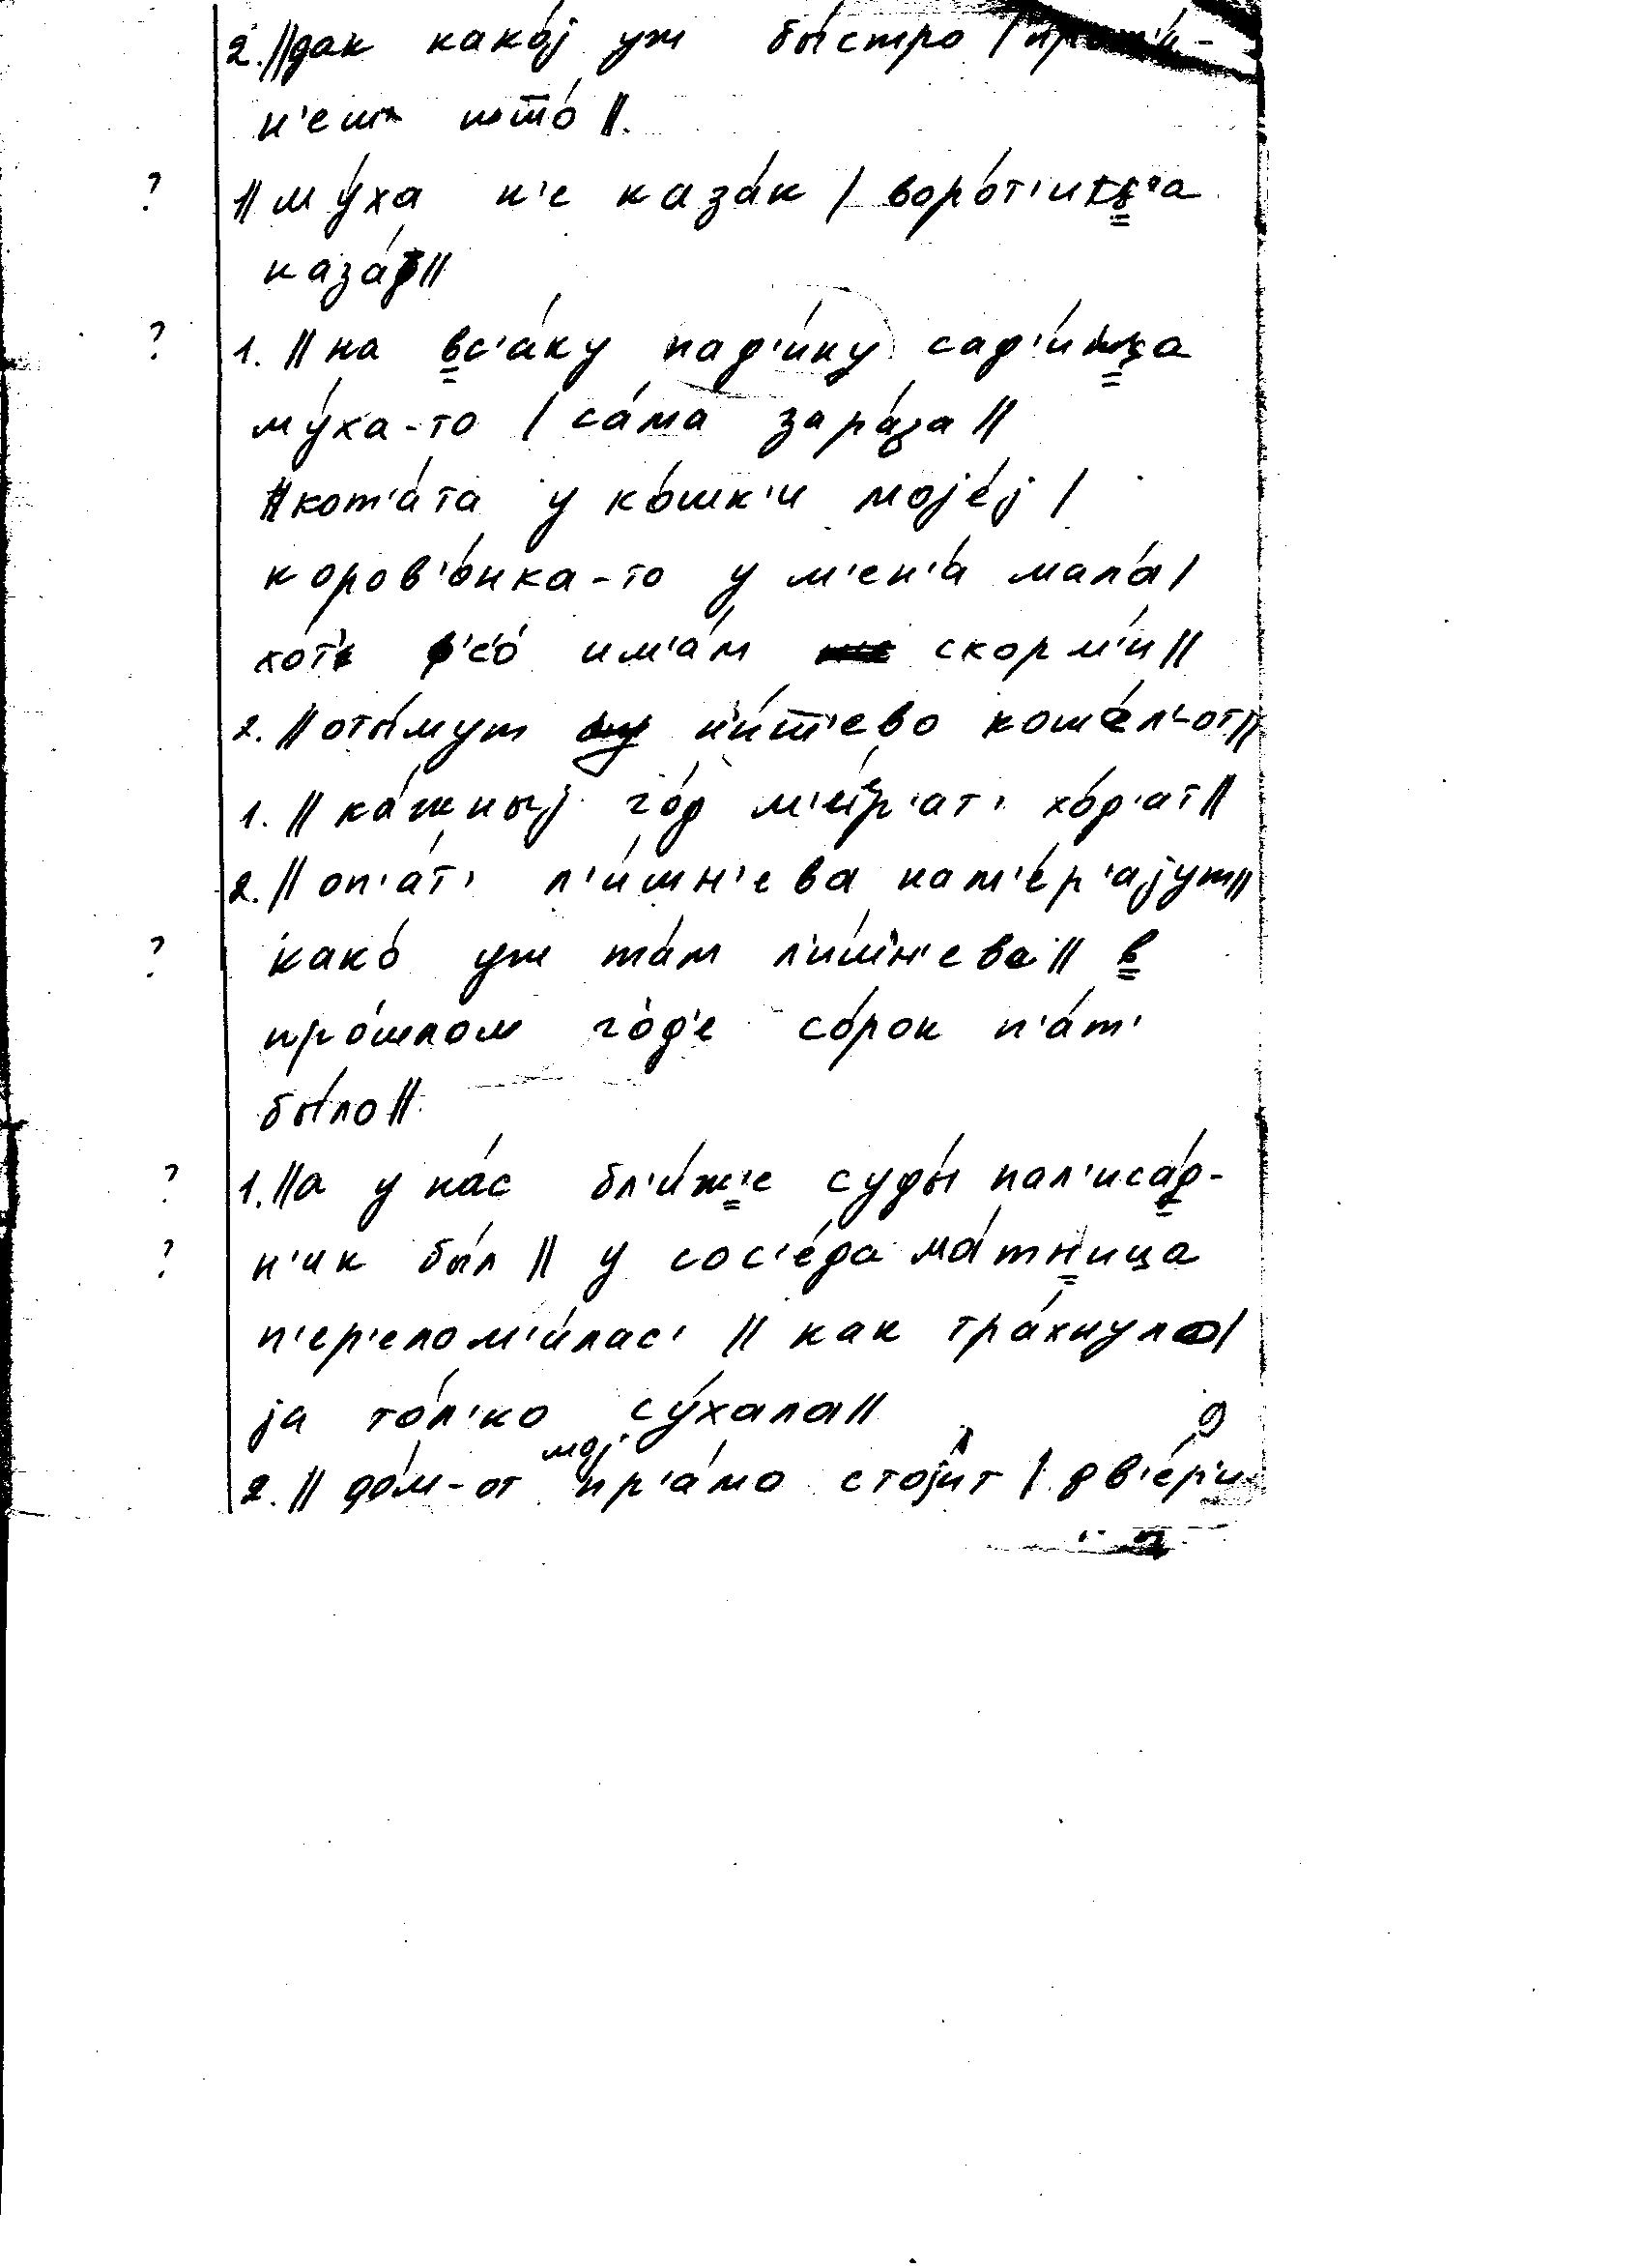 2. || дак како́ј уж бы́стро |
н'еш што́ ||.
? 1|| му́ха н'е каза́к / воро́т'ицца
наза́д ||
? 1. || на вс'а́ку пад'и́нку сад'и́цца
му́ха-то / са́ма зара́за ||
|| кот'а́та у ко́шк'и моје́ј /
коров'о́нка-то у м'ен'а́ мала́ /
хот' в'с'о́ им'а́м скорм'и́ ||
2. || оты́мут н'и́т'ево коше́л'-от ||
1. || ка́жныј го́д м'е́р'ат' хо́д'ат ||
2. || оп'а́т' л'и́шн'ева нам'е́р'ајут ||
? како́ уж та́м л'и́шн'ева || в
про́шлом го́д'е со́рок п'а́т'
бы́ло ||
? 1. || а у на́с бл'и́ж'е суды́ пал'иса́д-
? н'ик бы́л || у сос'е́да ма́тница
п'ер'елом'и́лас' || как тра́хнуло /
ја то́л'ко су́хала ||
2. || до́м-от мој пр'а́мо стоји́т / дв'е́р'и